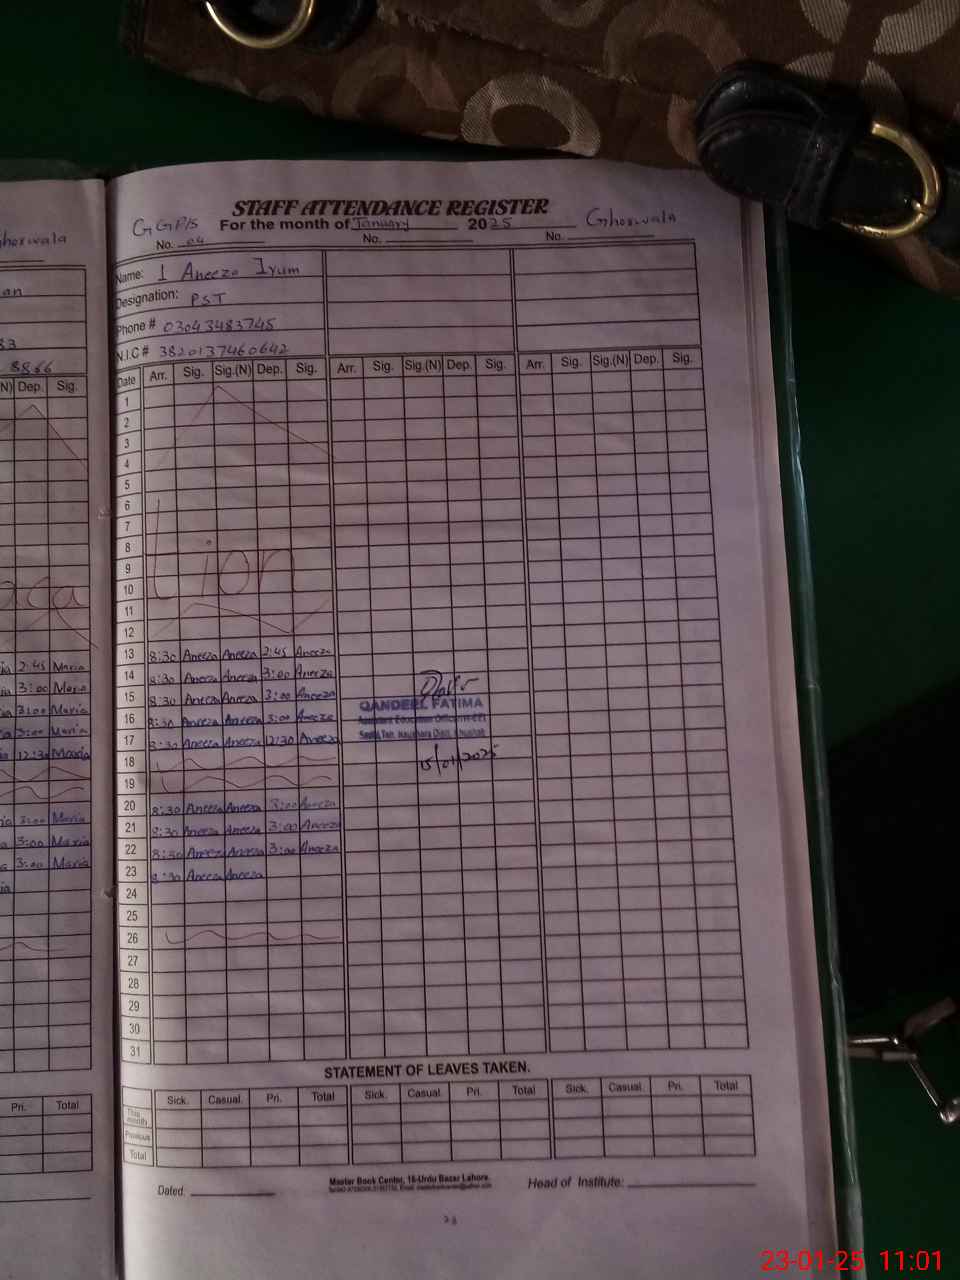 STAFF ATTENDANCE REGISTER
GGP/S For the month of January 2025 Ghorwala
No. 04 No. No.
Name: 1 Aneeza Iyum
Designation: PST
Phone # 03043483745
N.I.C # 3820137460642
Date Arr. Sig. Sig.(N) Dep. Sig. Arr. Sig. Sig.(N) Dep. Sig. Arr. Sig. Sig.(N) Dep. Sig.
1
2
3
4
5
6
7
8
9
10
11
12
13 8:30 Aneeza Aneeza 2:45 Aneeza
14 8:30 Aneeza Aneeza 3:00 Aneeza
15 8:30 Aneeza Aneeza 3:00 Aneeza
16 8:30 Aneeza Aneeza 3:00 Aneeza
17 8:30 Aneeza Aneeza 12:30 Aneeza
18
19
20 8:30 Aneeza Aneeza 3:00 Aneeza
21 8:30 Aneeza Aneeza 3:00 Aneeza
22 8:30 Aneeza Aneeza 3:00 Aneeza
23 8:30 Aneeza Aneeza
24
25
26
27
28
29
30
31
QANDEEL FATIMA
Assistant Education Officer
15/01/2025
STATEMENT OF LEAVES TAKEN.
Sick. Casual. Pri. Total Sick. Casual. Pri. Total Sick. Casual. Pri. Total
This month
Previous
Total
Dated:
Master Book Center, 16-Urdu Bazar Lahore.
Head of Institute:
horwala
an
83
8866
N) Dep. Sig.
2:45 Maria
3:00 Maria
3:00 Maria
3:00 Maria
12:30 Maaria
3:00 Maria
3:00 Maria
3:00 Maria
Pri. Total
23-01-25 11:01